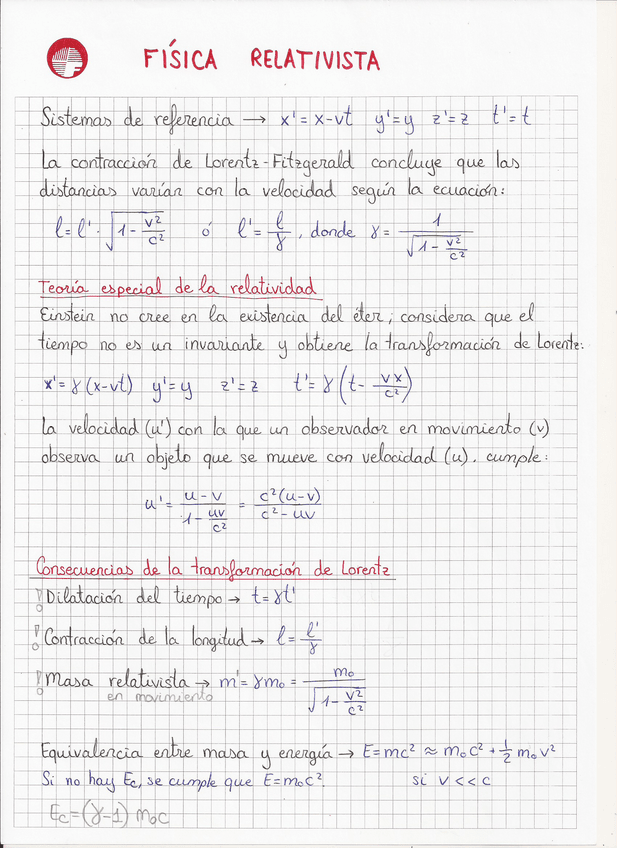 FÍSICA RELATIVISTA
Sistemas de referencia → x' = x-vt y'=y z'=z t'=t
La contracción de Lorentz-Fitzgerald concluye que las
distancias varían con la velocidad según la ecuación:
l = l' · √(1 - v²/c²) ó l' = l/γ, donde γ = 1/√(1 - v²/c²)
Teoría especial de la relatividad
Einstein no cree en la existencia del éter, considera que el
tiempo no es un invariante y obtiene la transformación de Lorentz:
x' = γ (x-vt) y'=y z'=z t' = γ (t - vx/c²)
La velocidad (u') con la que un observador en movimiento (v)
observa un objeto que se mueve con velocidad (u), cumple:
u' = (u-v)/(1 - uv/c²) = c²(u-v)/(c²-uv)
Consecuencias de la transformación de Lorentz
! Dilatación del tiempo → t=γt'
! Contracción de la longitud → l = l'/γ
! Masa relativista → m' = γm₀ = m₀/√(1 - v²/c²)
en movimiento
Equivalencia entre masa y energía → E=mc² ≈ m₀c² + ½ m₀v²
Si no hay Ec, se cumple que E=m₀c². si v << c
Ec = (γ-1) m₀c